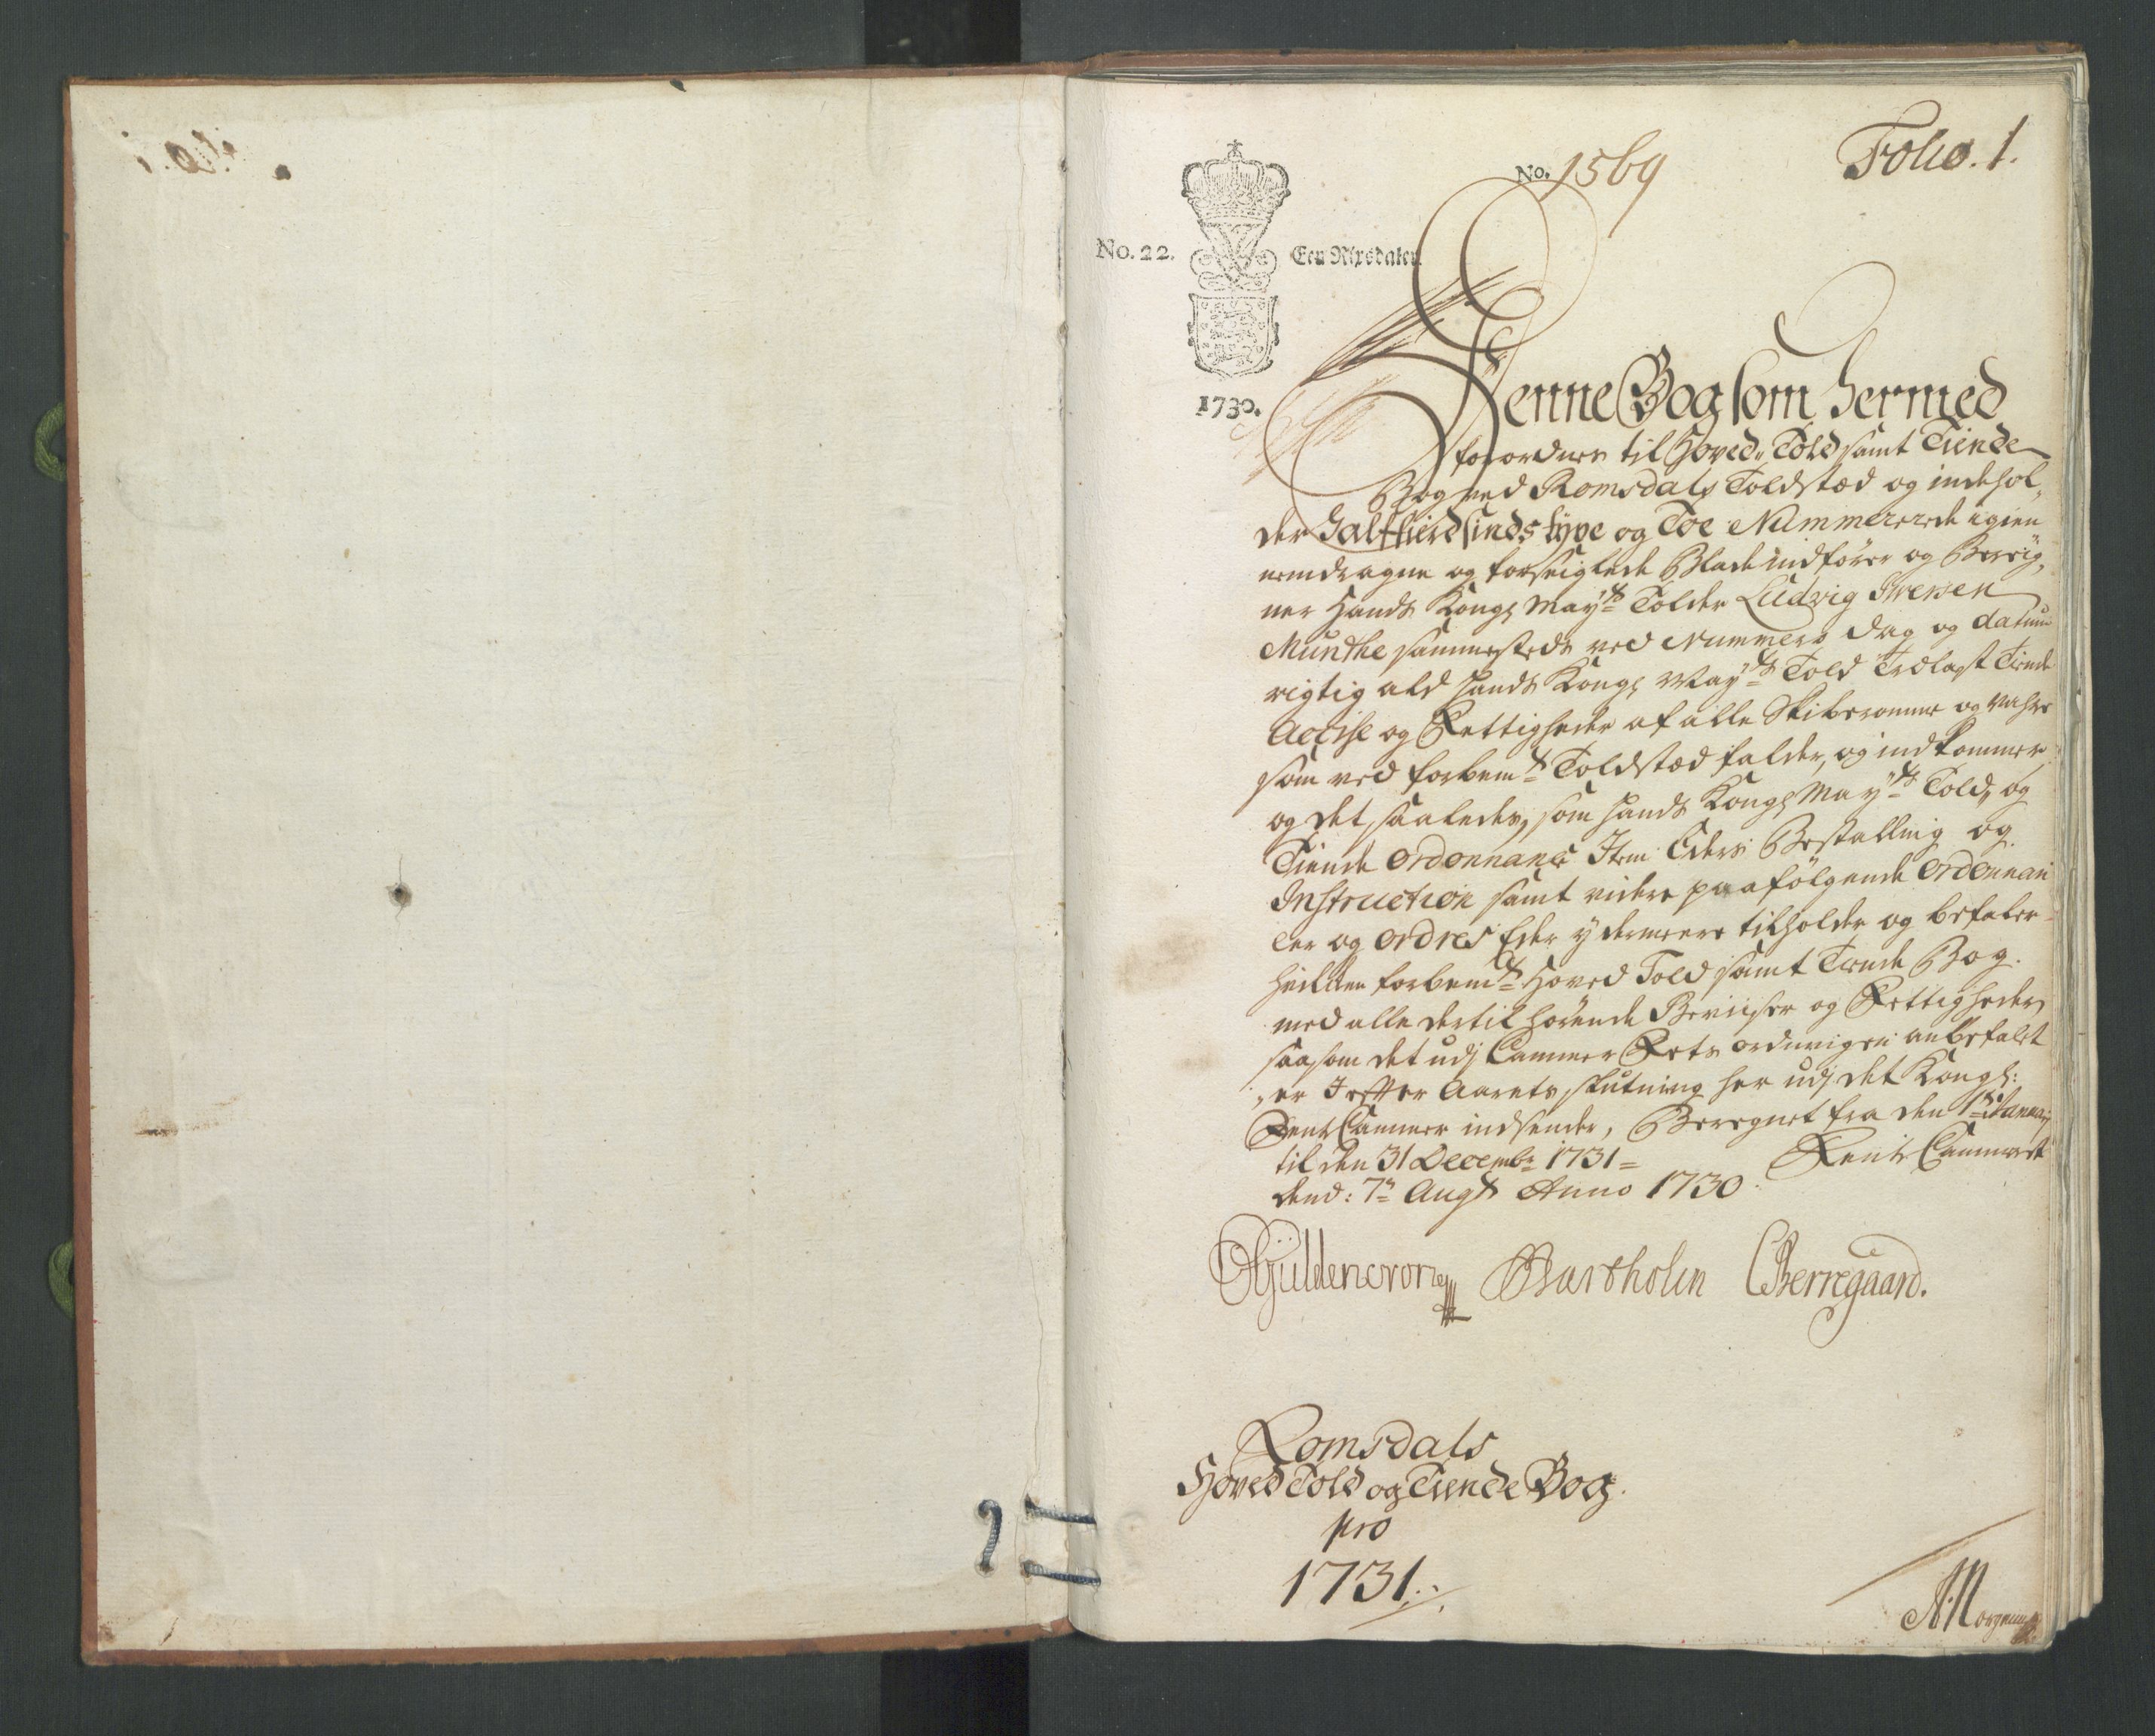 Folio. 1.
No. 1569
No. 22. Een Rixsdaler.
1730.
Denne Bog som hermed
forordnes til Hoved Told samt Tiende
Bog ved Romsdals Toldstæd og indehol-
der Halffierdsinds tyve og Toe Nummererede igien
nemdragne og forseiglede Blade indfører og Bereig-
ner Hands Kongl May:ts Tolder Ludvig Iversen
Munthe sammesteds ved Nummer Dag og datum
rigtig ald Hands Kongl May:ts Told Trelast Tiende
Accise og Rettigheder af alle Skibsromme og Vahre
som ved forbem:te Toldstæd falder, og indkommer
og det saaledes, som Hands Kongl May:ts Told og
Tiende Ordonnance Item Eders Bestalling og
Instruction samt videre paafølgende Ordonnan
cer og Ordres Eder ydermeere tilholder og befaler
hvilken forbem:te Hoved Told samt Tiende Bog
med alle dertil hørende Beviiser og Rettigheder
saasom det udj Cammer Rets ordningen anbefalet
er I effter Aarets slutning her udj det Kongl:
Rente Cammer indsender, Beregnet fra den 1:ste Januarij
til den 31 Decembr 1731 = Rente Cammeret
dend: 7:de Aug:ti Anno 1730
Güldencrone Bartholin CBerregaard.
Romsdals
Hoved Told og Tiende Bog.
pro
1731.